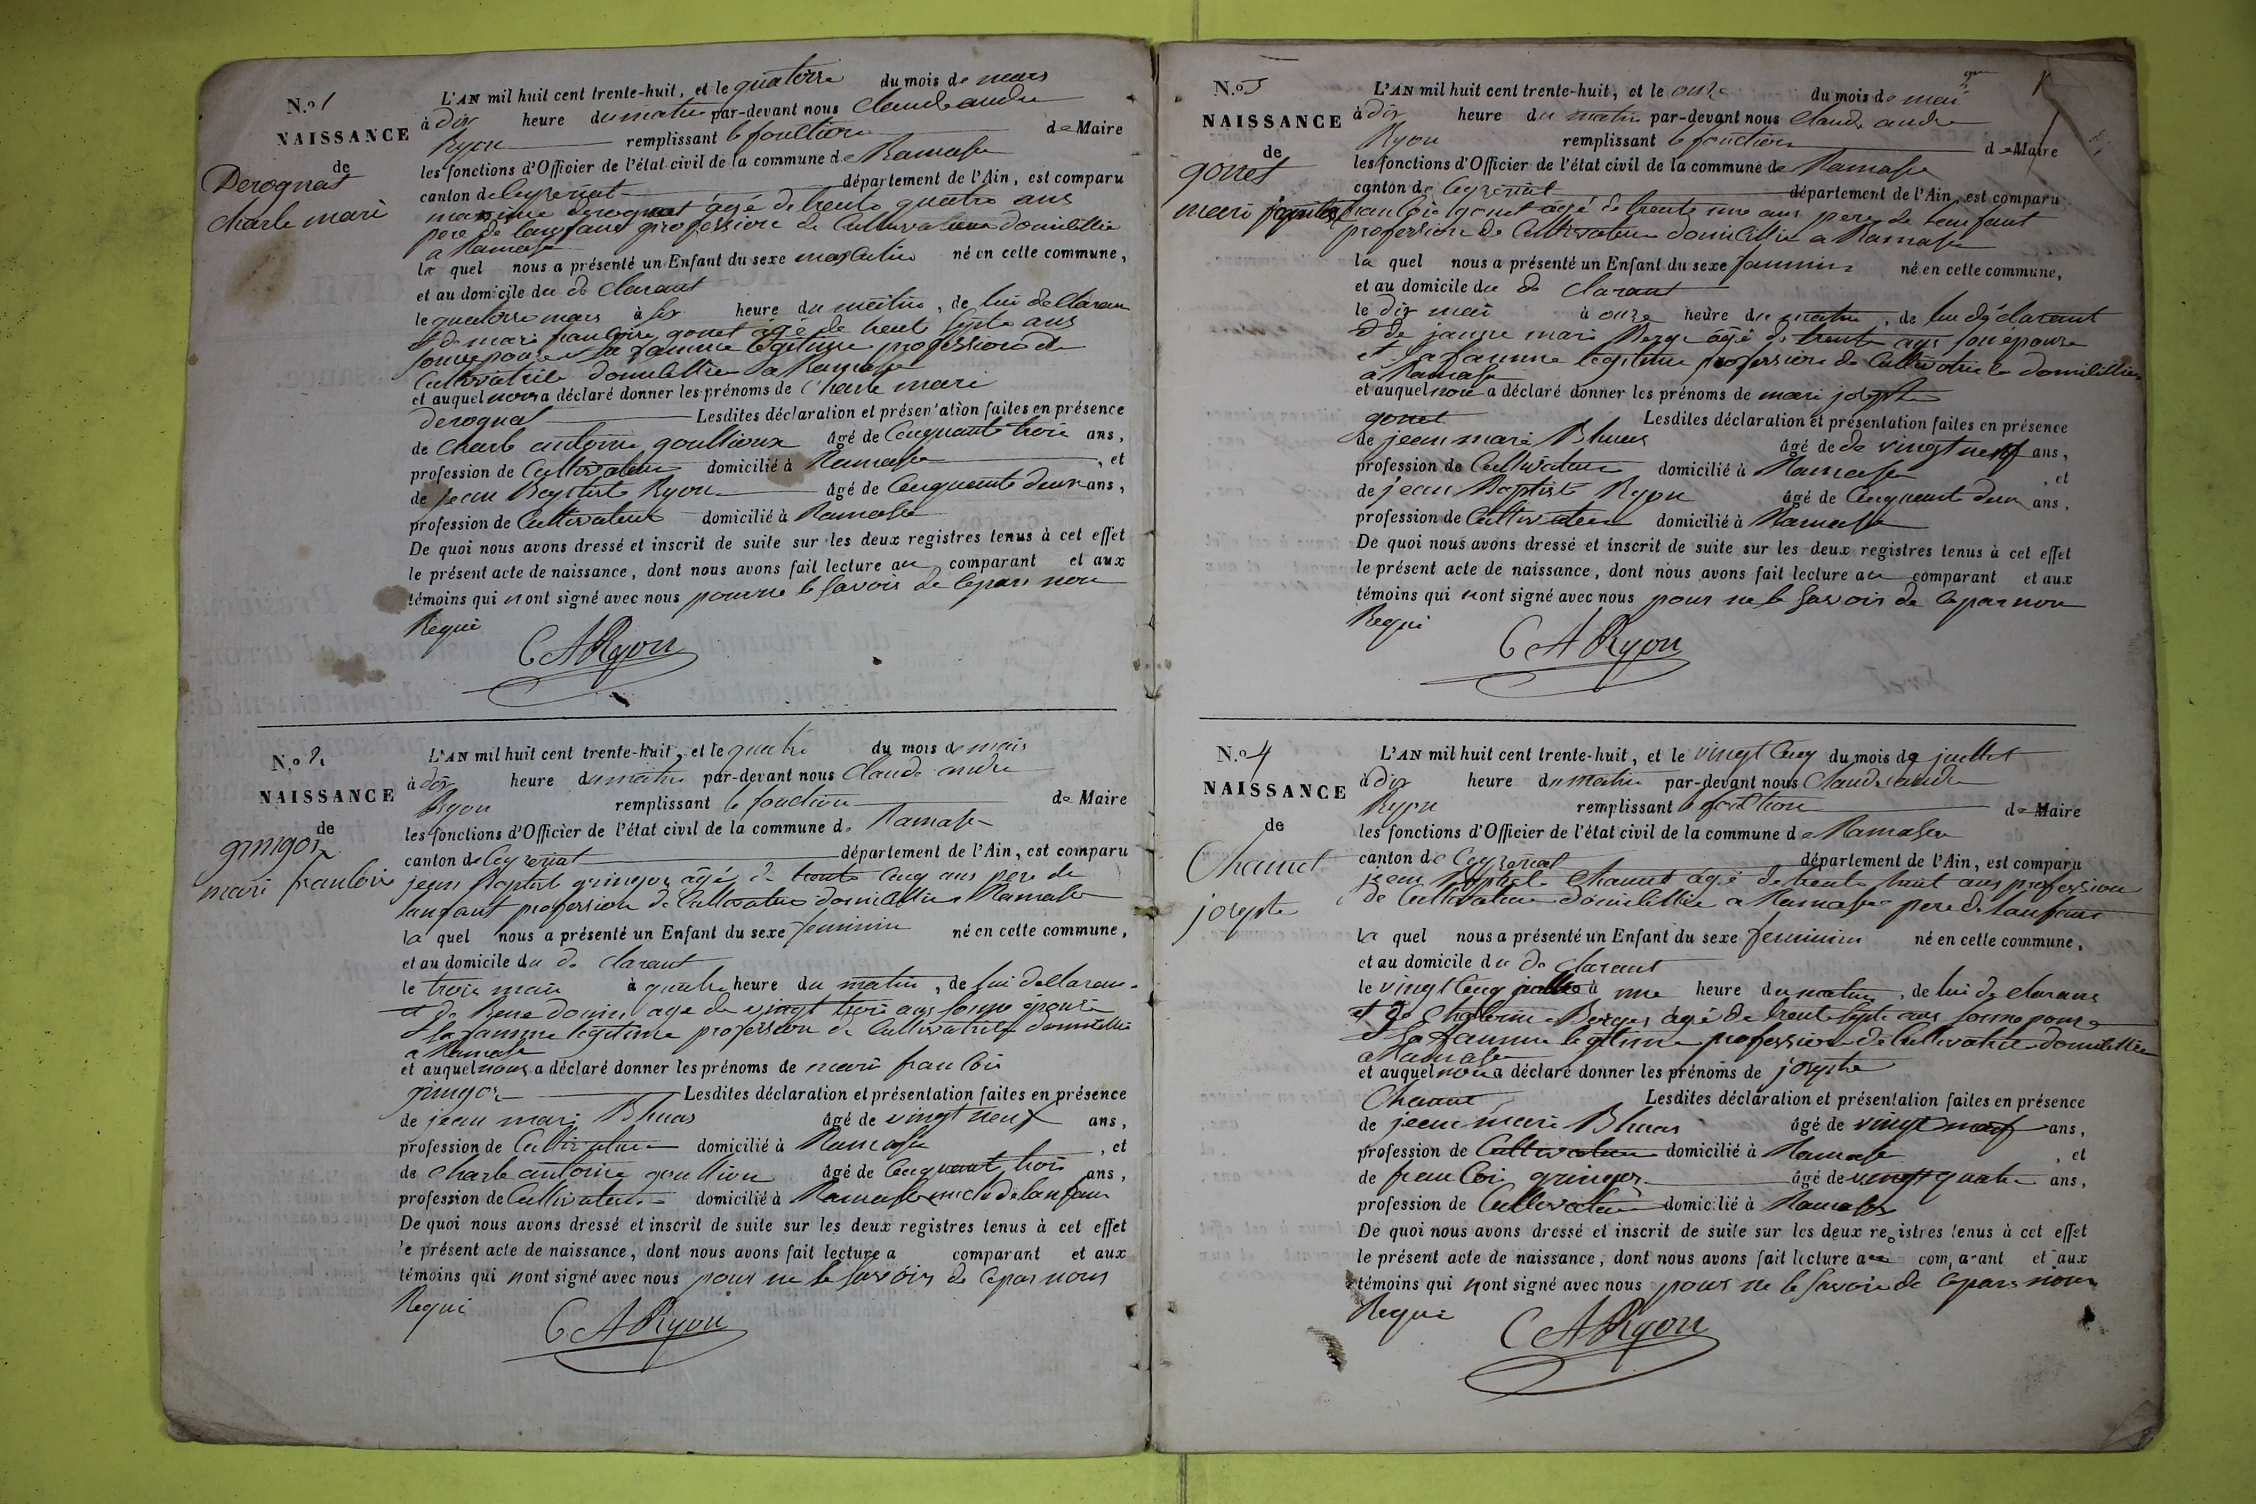 N.o 1
NAISSANCE
de
Derognat
charle marie
L'AN mil huit cent trente-huit, et le quatorze du mois de mars
à dix heure du matin par-devant nous Claude andre
Ryon remplissant le fonction de Maire
les fonctions d'Officier de l'état civil de la commune de Ramasse
canton de Ceyzeriat département de l'Ain, est comparu
derognat âgé de trente quatre ans
pere de lanfant profession de Cultivateur domicillié
a Ramasse
le quel nous a présenté un Enfant du sexe masculin né en cette commune,
et au domicile du de clarant
le quatorze mars à six heure du matin, de lui declarant
et de mari francoise gonet âgé de trent septe ans
son epouse sa famme legitime profession de
Cultivatrice domicillié a Ramasse
et auquel nous a déclaré donner les prénoms de Charle mari
derognat Lesdites déclaration et présentation faites en présence
de Charle antoine goullioux âgé de Cenquante trois ans,
profession de Cultivateur domicilié à Ramasse, et
de jean Baptiste Ryon âgé de Cenquante deux ans,
profession de Cultivateur domicilié à Ramasse
De quoi nous avons dressé et inscrit de suite sur les deux registres tenus à cet effet
le présent acte de naissance, dont nous avons fait lecture au comparant et aux
témoins qui n'ont signé avec nous pour ne le savoir de ce par nou
Requi
C A Ryon
N.o 2
NAISSANCE
de
gringoz
mari francoise
L'AN mil huit cent trente-huit, et le quatre du mois de mai
à dix heure du matin par-devant nous Claude andre
Ryon remplissant le fonction de Maire
les fonctions d'Officier de l'état civil de la commune de Ramasse
canton de Ceyzeriat département de l'Ain, est comparu
jean Baptist gringoz âgé de trente Cinq ans pere de
lanfant profession de Cultivateur domicillié a Ramasse
la quel nous a présenté un Enfant du sexe feminin né en cette commune,
et au domicile du de clarant
le trois mai à quatre heure du matin, de lui declarant
et de Rene age de vingt trois ans sonne épouse
et sa famme legitime profession de Cultivatrice domicillié
a Ramasse
et auquel nous a déclaré donner les prénoms de mari francoi
gringoz Lesdites déclaration et présentation faites en présence
de jean mari Bluas âgé de vingt neuf ans,
profession de Cultivateur domicilié à Ramasse, et
de Charle antoine goullion âgé de Cenquant trois ans,
profession de Cultivateur domicilié à Ramasse oncle de lanfant
De quoi nous avons dressé et inscrit de suite sur les deux registres tenus à cet effet
le présent acte de naissance, dont nous avons fait lecture a comparant et aux
témoins qui n'ont signé avec nous pour ne le savoir de ce par nous
Requi
C A Ryon
N.o 3
NAISSANCE
de
gonet
mari josephte
L'AN mil huit cent trente-huit, et le onze du mois de mai
à dix heure du matin par-devant nous Claude andre
Ryon remplissant le fonction de Maire
les fonctions d'Officier de l'état civil de la commune de Ramasse
canton de Ceyzeriat département de l'Ain, est comparu
francois gonet âgé de trente une ans pere de lenfant
profession de Cultivateur domicillié a Ramasse
la quel nous a présenté un Enfant du sexe faminin né en cette commune,
et au domicile du de clarant
le dix mai à onze heure du matin, de lui déclarant
mari âgé de trente ans son épouse
et sa famme legitime profession de Cultivatrice domicillié
à Ramasse
et auquel nous a déclaré donner les prénoms de mari josephte
gonet Lesdites déclaration et présentation faites en présence
de jean mari Bluas âgé de de vingt neuf ans,
profession de Cultivateur domicilié à Ramasse, et
de jean Baptiste Ryon âgé de Cenquant deux ans,
profession de Cultivateur domicilié à Ramasse
De quoi nous avons dressé et inscrit de suite sur les deux registres tenus à cet effet
le présent acte de naissance, dont nous avons fait lecture au comparant et aux
témoins qui n'ont signé avec nous pour ne le savoir de ce par nou
Requi
C A Ryon
N.o 4
NAISSANCE
de
Chanel
josephte
L'AN mil huit cent trente-huit, et le vingt Cinq du mois de juillet
à dix heure du matin par-devant nous Claude andre
Ryon remplissant le fonction de Maire
les fonctions d'Officier de l'état civil de la commune de Ramasse
canton de Ceyzeriat département de l'Ain, est comparu
jean Baptiste Chanel âgé de trente huit ans profession
de Cultivateur domicillié a Ramasse pere de lanfant
la quel nous a présenté un Enfant du sexe feminin né en cette commune,
et au domicile du de clarant
le vingt Cinq juillet à une heure du matin, de lui de clarant
et de Berger âgé de trente septe ans sonne épouse
et sa famme legitime profession de Cultivatrice domicillié
a Ramasse
et auquel nous a déclaré donner les prénoms de josephte
Chanel Lesdites déclaration et présentation faites en présence
de jean mari Bluas âgé de vingt neuf ans,
profession de Cultivateur domicilié à Ramasse, et
de francoi gringoz âgé de vingt quatre ans,
profession de Cultivateur domicilié à Ramasse
De quoi nous avons dressé et inscrit de suite sur les deux registres tenus à cet effet
le présent acte de naissance, dont nous avons fait lecture au comparant et aux
témoins qui n'ont signé avec nous pour ne le savoir de ce par nou
Requi
C A Ryon